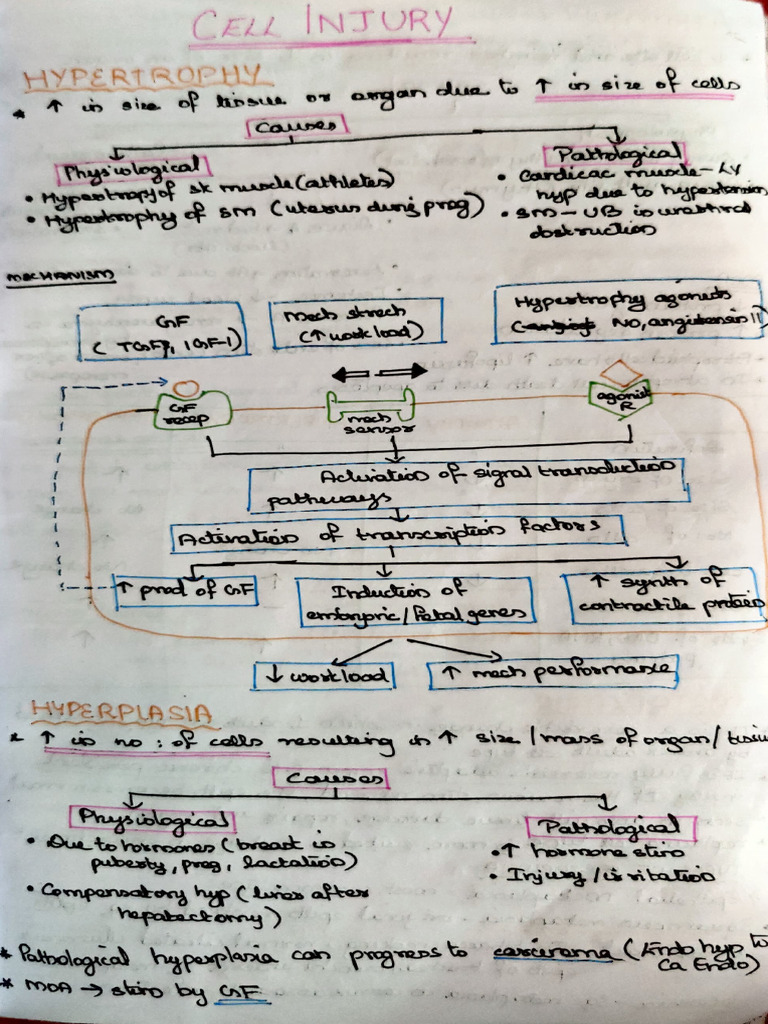 CELL INJURY
HYPERTROPHY
* ↑ in size of tissue or organ due to ↑ in size of cells
Causes
Physiological
• Hypertropy of sk muscle (athletes)
• Hypertrophy of SM (uterus during preg)
Pathological
• Cardicac muscle - LV
hyp due to hypertension
• SM - UB in urethral
obstruction
MECHANISM
GF
( TGFβ, IGF-1)
Mech strech
(↑ workload)
Hypertrophy agonists
NO, angiotensin II
GF
recep
mech
sensor
agonist
R
Activation of signal transduction
pathways
Activation of transcription factors
↑ prod of GF
Induction of
embryonic/Fetal genes
↑ synth of
contractile protein
↓ workload
↑ mech performance
HYPERPLASIA
* ↑ in no: of cells resulting in ↑ size / mass of organ/
Causes
Physiological
• Due to hormones (breast in
puberty, preg, lactation)
• Compensatory hyp (liver after
hepatectomy)
Pathological
• ↑ hormone stim
• Injury / irritation
* Pathological hyperplasia can progress to carcinoma (Endo hyp to
Ca Endo)
* MOA → stim by GF